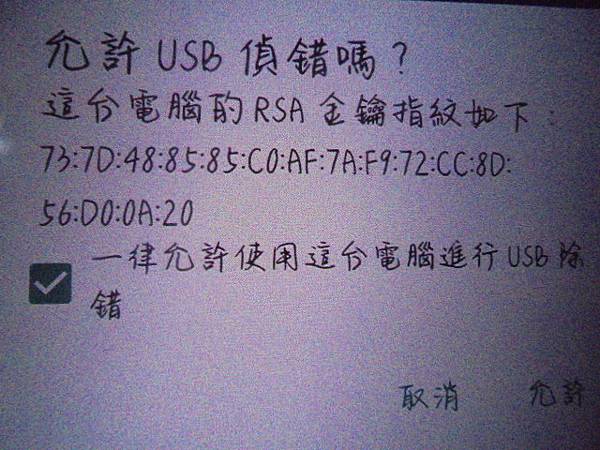 允許 USB 偵錯嗎？
這台電腦的 RSA 金鑰指紋如下：
73:7D:48:85:85:C0:AF:7A:F9:72:CC:8D:
56:D0:0A:20
一律允許使用這台電腦進行 USB 除
錯
取消 允許